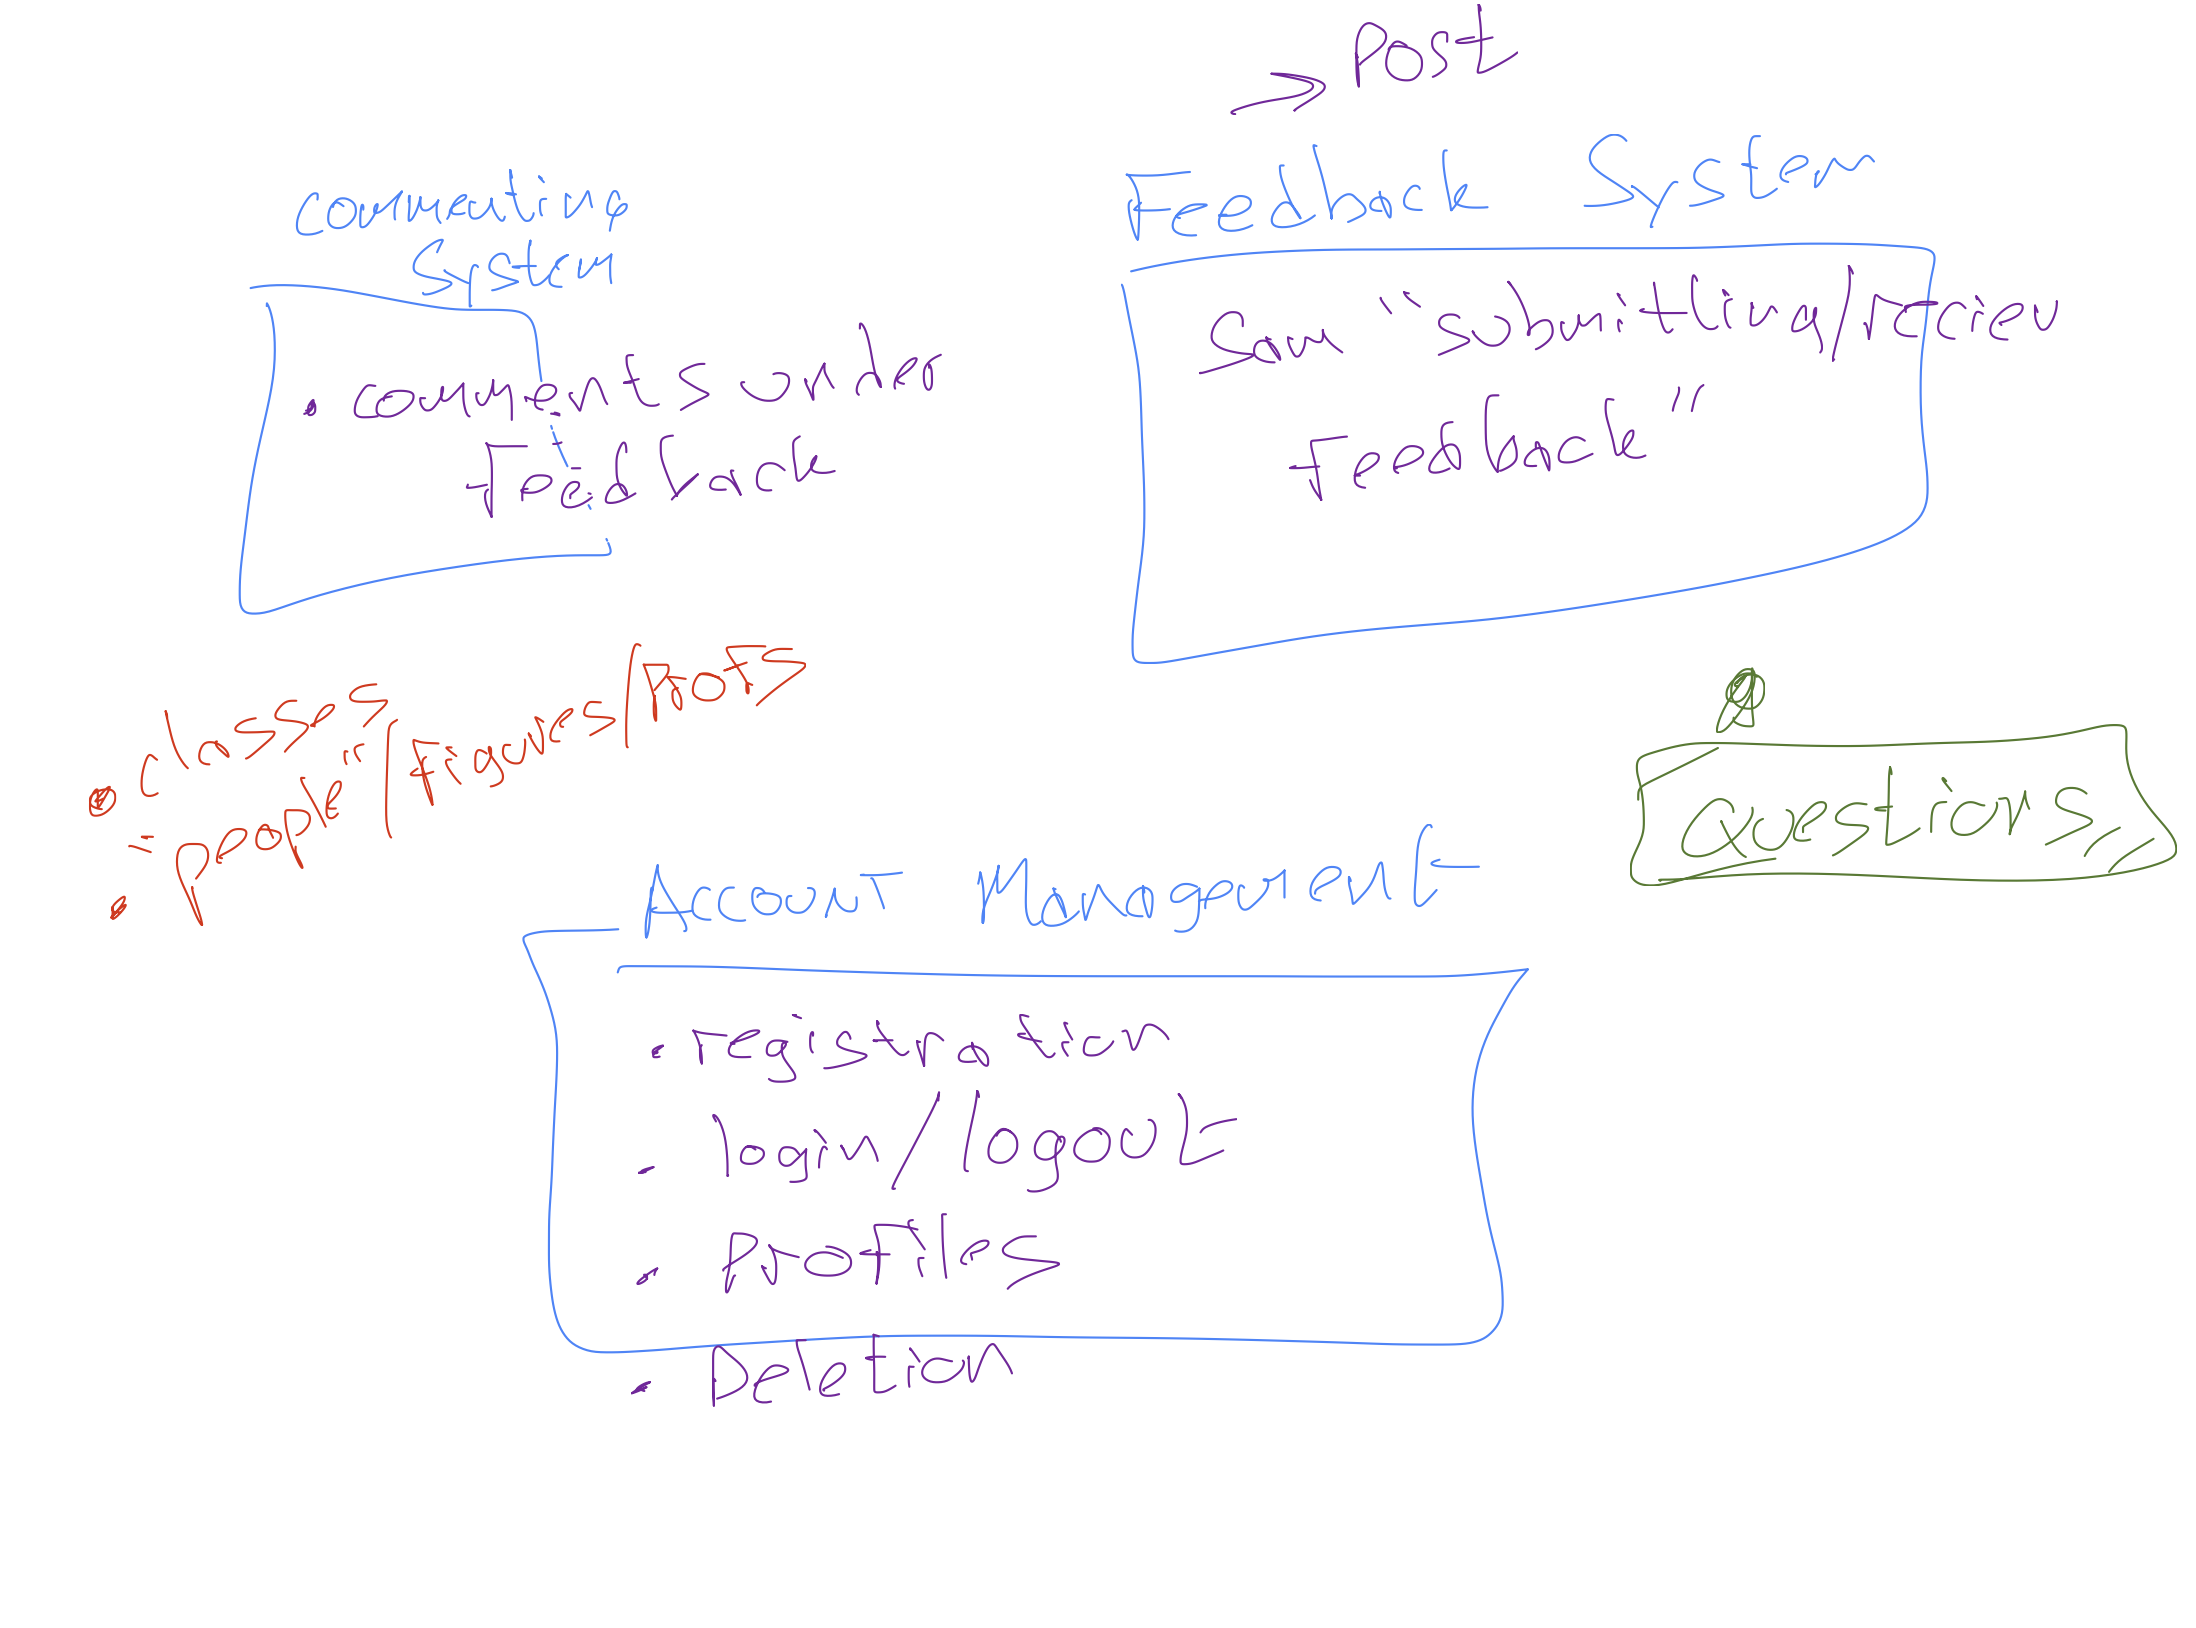 → Post
Commenting
System
• comments under
Feedback
Feedback System
"submitting/reciev
Feedback"
• classes
• "people" / figures / Profs
Questions
Account Management
• registration
• login/logout
• Profiles
• Deletion